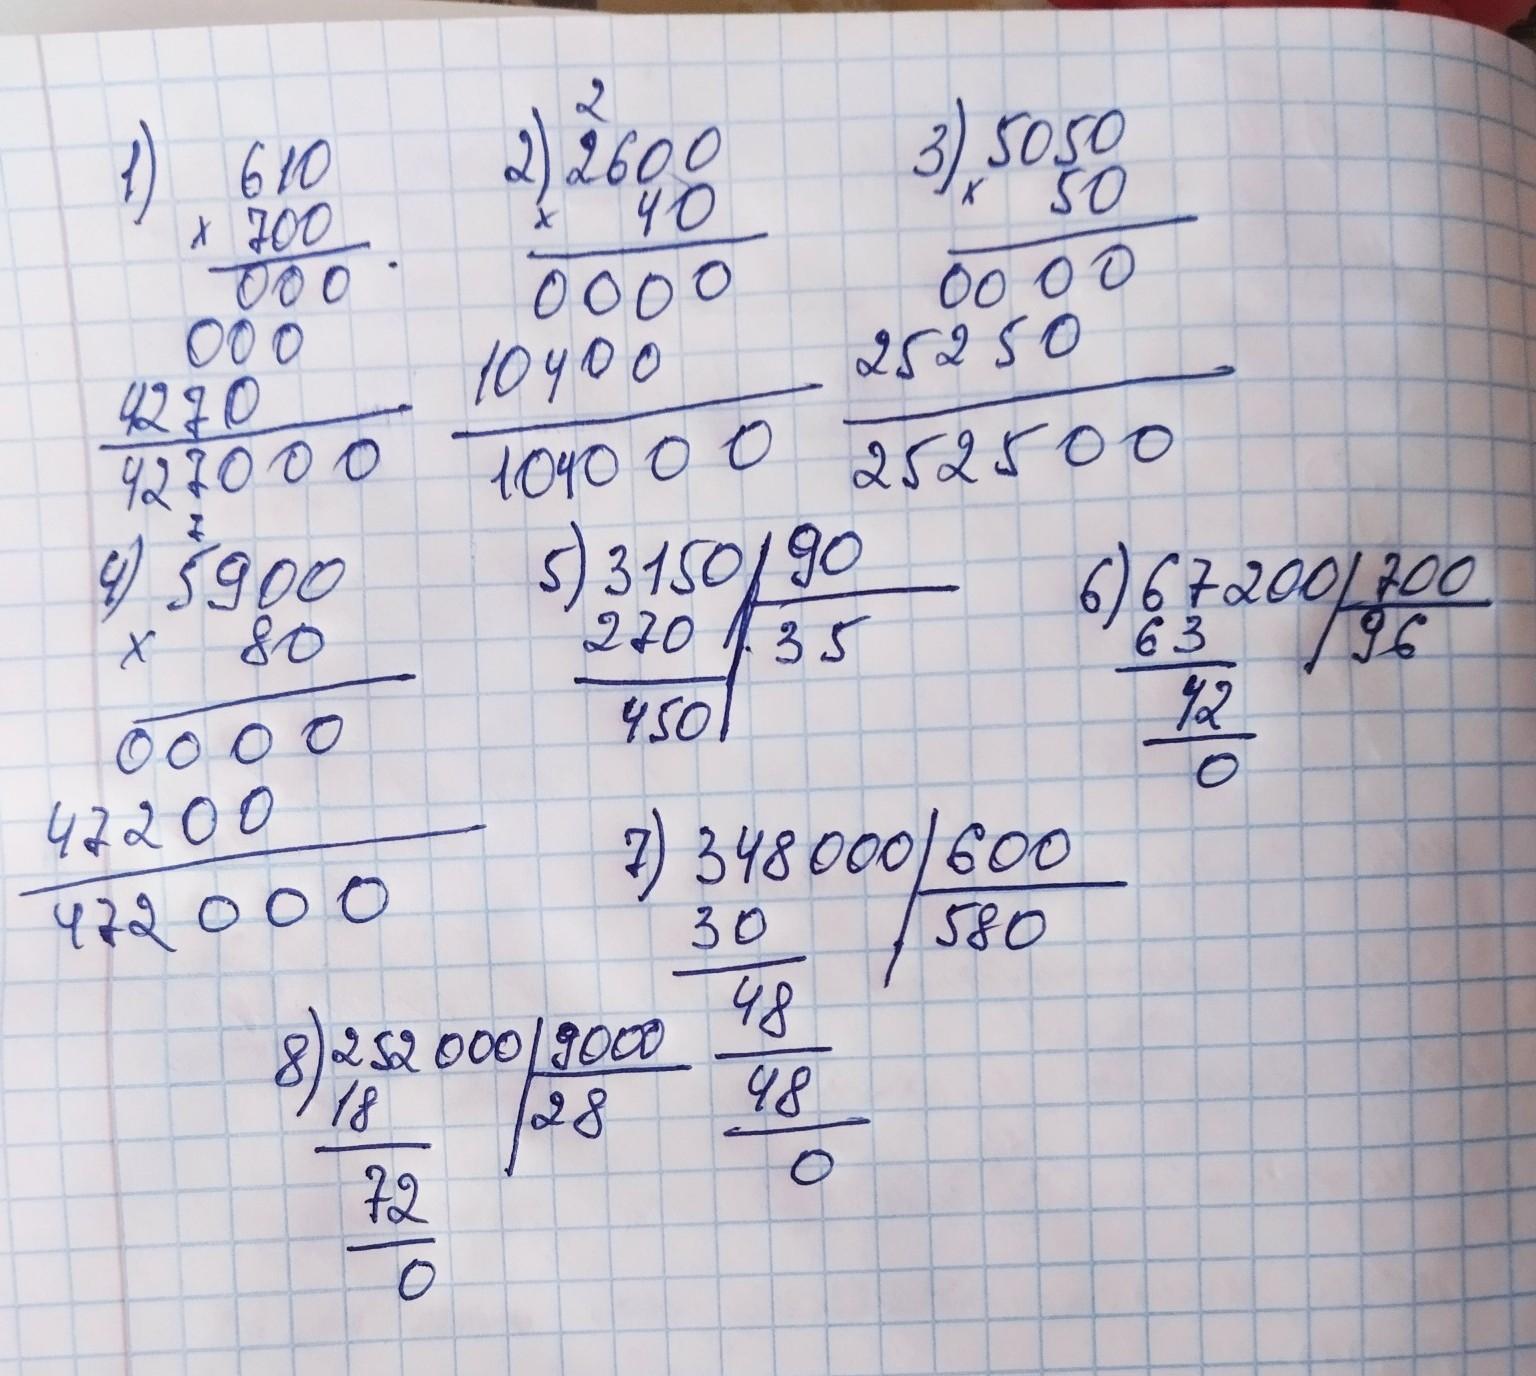 1) 610
x 700
000
000
4270
427000
2
2) 2600
x 40
0000
10400
104000
3) 5050
x 50
0000
25250
252500
7
4) 5900
x 80
0000
47200
472000
5) 3150 90
270 35
450
6) 67200 700
63 96
42
0
7) 348000 600
30 580
48
48
0
8) 252000 9000
18 28
72
0